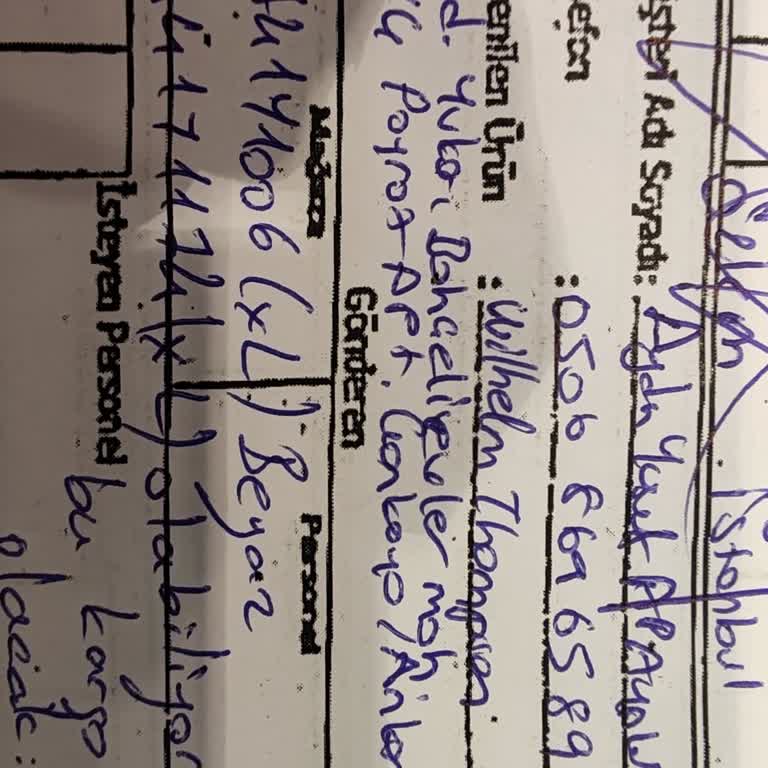 Selven İstanbul
şteri Adı Soyadı: Aydın Yusuf
efon : 0506 869 65 89
enilen Ürün : Wilhelm Thompson
d. Yuka. Bahçelievler mah
Poyraz Apt. Çankaya/Anka
Gönderen
Mağaza Personel
4141006 (XL) Beyaz
417117U (XL) olabiliyor
İsteyen Personel
bu kargo
olacak: